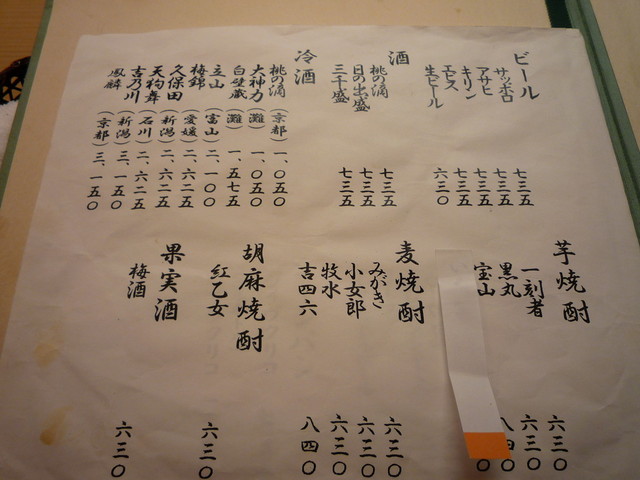 ビール
サッポロ 七三五
アサヒ 七三五
キリン 七三五
エビス 七三五
生ビール 六三〇
酒
桃の滴 七三五
日の出盛 七三五
三千盛 七三五
冷酒
桃の滴（京都）一、〇五〇
大神力（灘）一、〇五〇
白壁蔵（灘）一、五七五
立山（富山）二、一〇〇
梅錦（愛媛）二、六二五
久保田（新潟）二、六二五
天狗舞（石川）二、六二五
吉乃川（新潟）三、一五〇
鳳麟（京都）三、一五〇
芋焼酎
一刻者 六三〇
黒丸 六三〇
宝山 八四〇
麦焼酎
みがき 六三〇
小女郎 六三〇
牧水 六三〇
吉四六 八四〇
胡麻焼酎
紅乙女 六三〇
果実酒
梅酒 六三〇